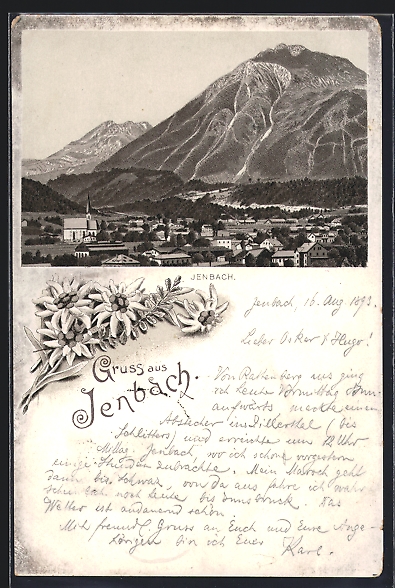 JENBACH.
Jenbach, 16. Aug 1893.
Lieber Oskar & Hugo!
Gruss aus
Jenbach.
Von Rattenberg aus ging
ich heute Vormittag Inn-
aufwärts, machte einen
Abstecher ins Zillerthal (bis
Schlitters) und erreichte um 12 Uhr
Mittags Jenbach, wo ich schon vorgestern
einige Stunden zubrachte. Mein Marsch geht
dann bis Schwaz, von da aus fahre ich wahr-
scheinlich noch heute bis Innsbruck. Das
Wetter ist andauernd schön.
Mit freundl. Gruss an Euch und Eure Ange-
hörigen bin ich Euer Karl.